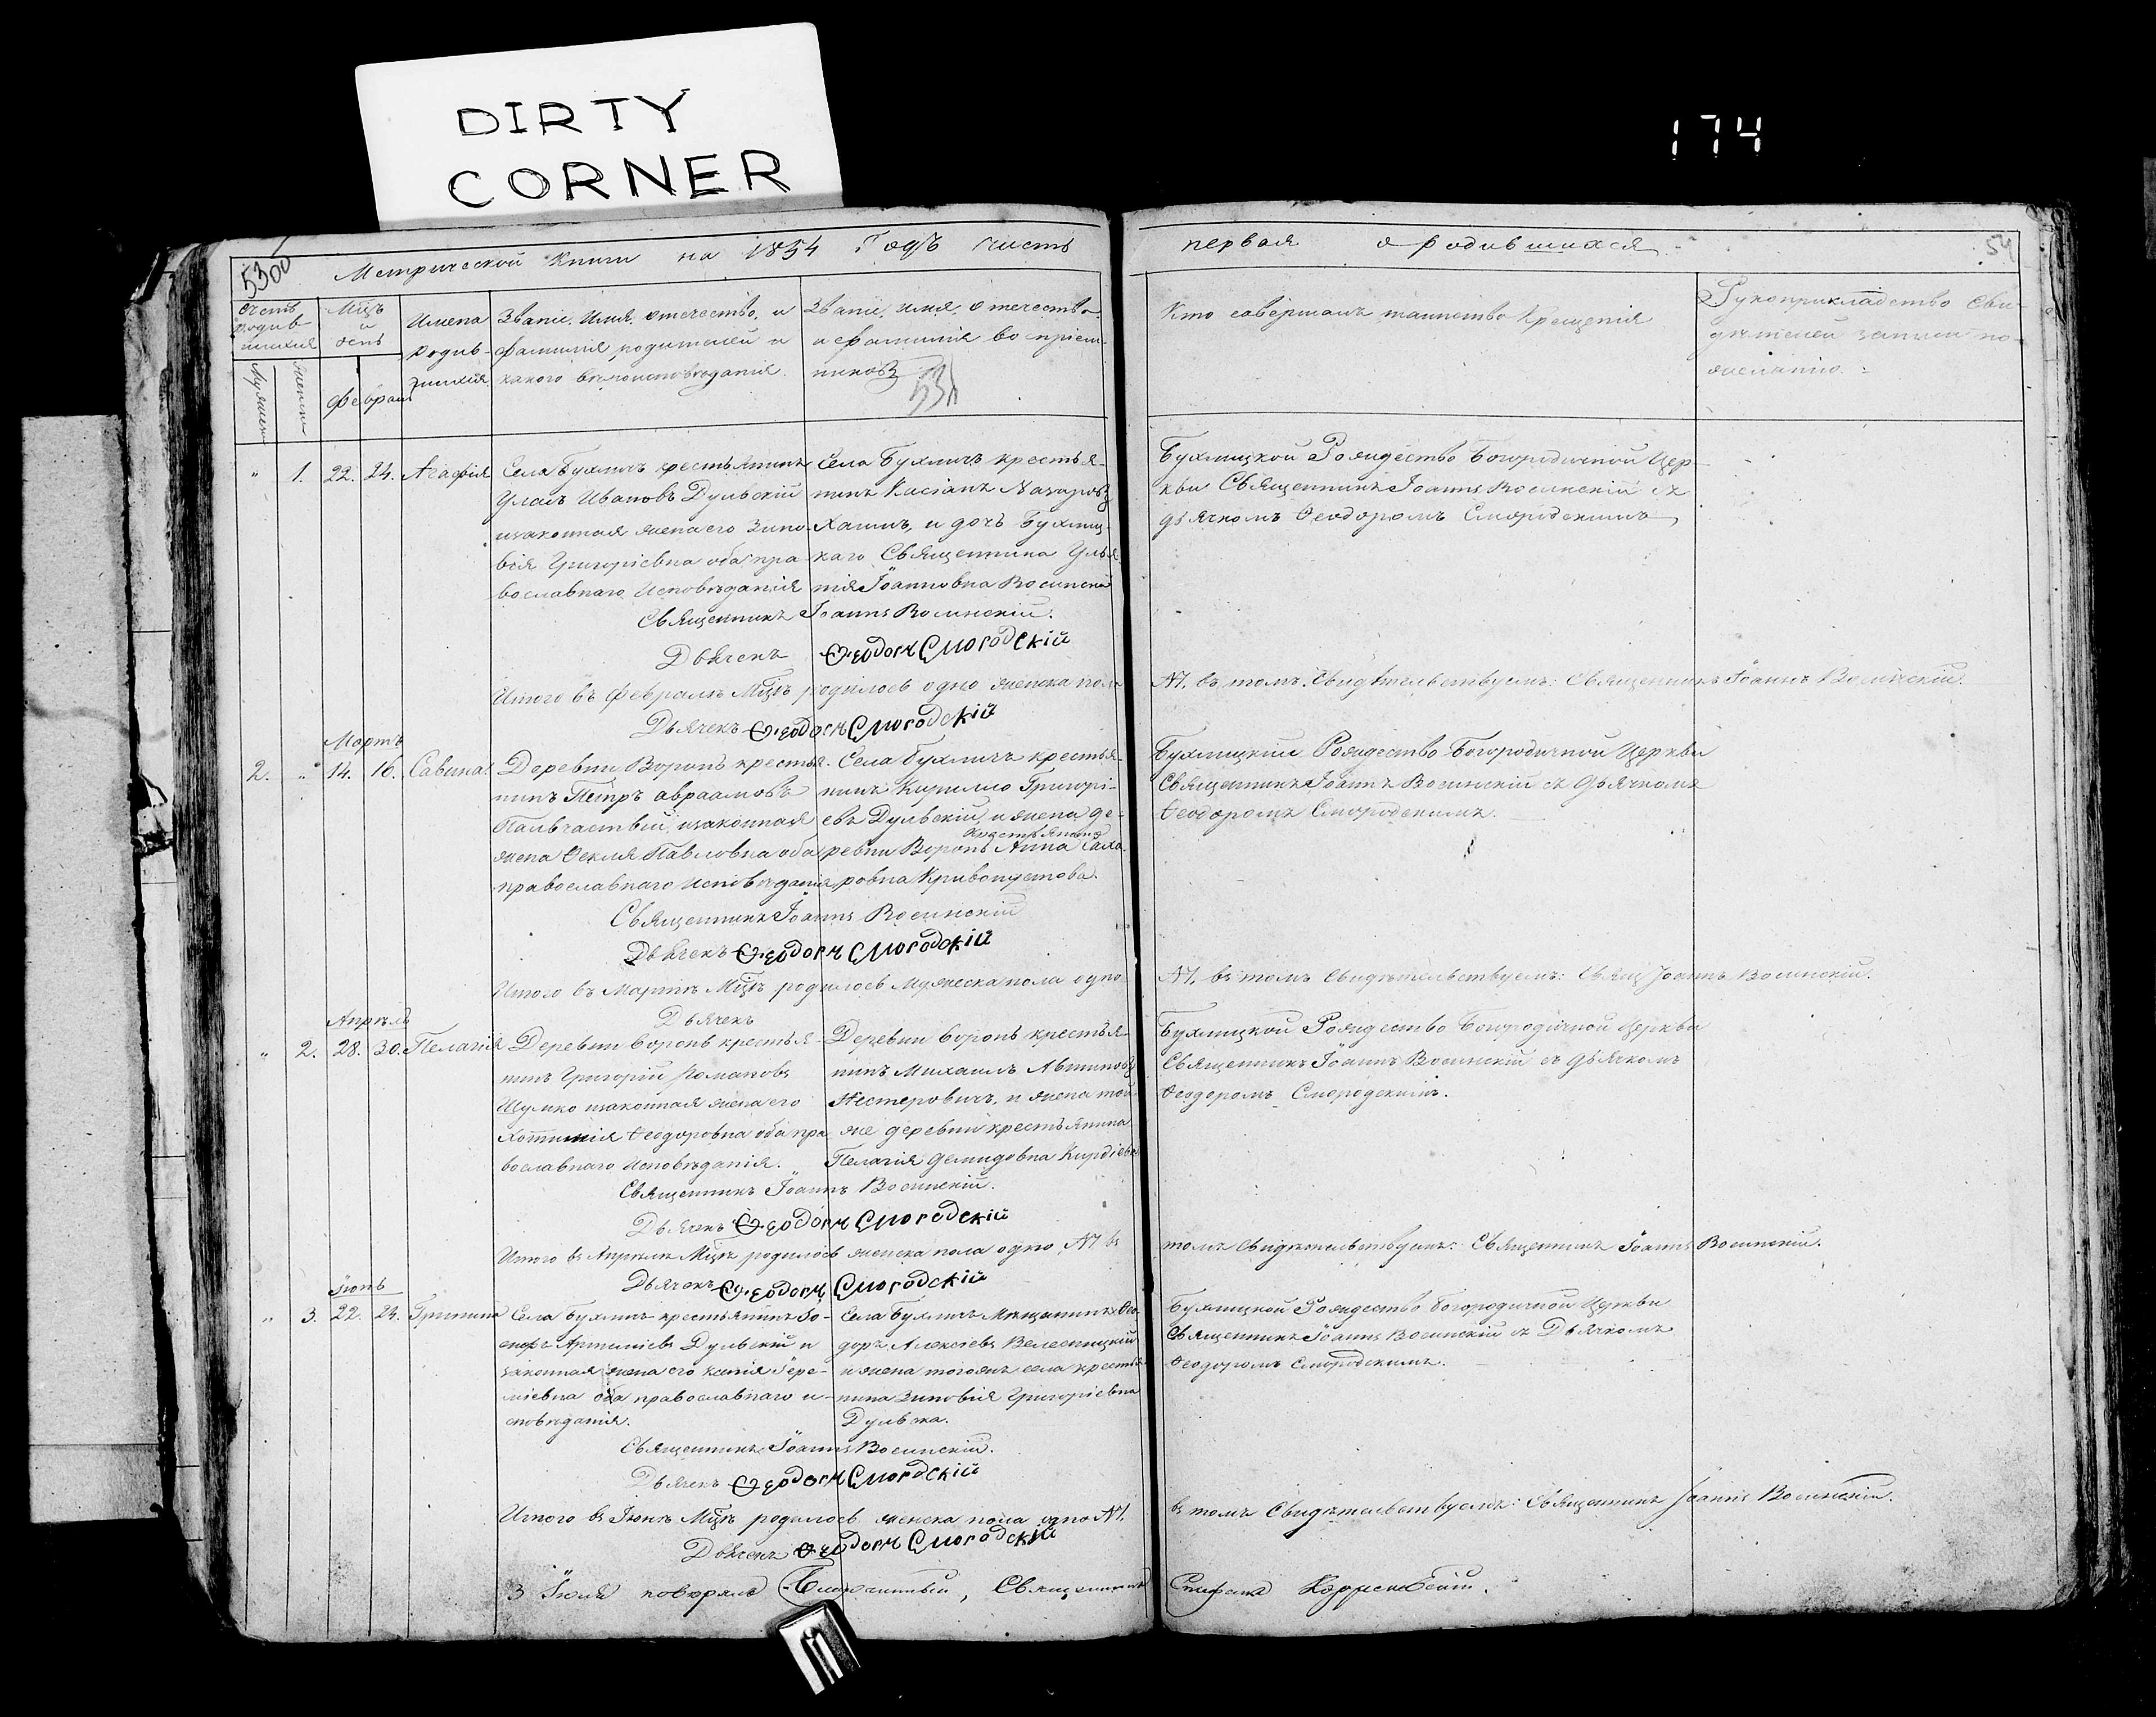 DIRTY
CORNER
174
5300
Метрической Книги на 1854 Годъ часть
первая о родившихся
54
Счетъ родив-
шихся
Мужеск
женски
Мцъ
и
день
Февраль
Имена
родив-
шихся
Званіе, Имя, отечество, и
фамилія родителей и
какого вѣроисповѣданія.
Званіе, имя, отечество
и фамилія воспріем-
никовъ
Кто совершалъ таинство Крещенія
Рукоприкладство Сви-
дѣтелей записи по
желанію.
" 1. 22. 24. Агафія
Села Бухличъ крестьянинъ
Уласъ Ивановъ Дульскій
изаконная жена его Зино-
вія Григоріевна оба пра-
вославнаго Исповѣданія
Села Бухличъ крестья-
нинъ Касіанъ Назаровъ
и дочь Бухлиц-
каго Священника Улья-
нія Іоанновна
Бухлицкой Рождество Богородичной Цер-
кви Священникъ Іоаннъ съ
дьячкомъ Ѳеодоромъ Смородскимъ
Священникъ Іоаннъ
Дьячекъ Ѳеодоръ Смородскій
Итого въ Февралѣ Мцѣ родилось одно женска пола
№1. въ томъ Свидѣтельствуемъ: Священникъ Іоаннъ
Дьячекъ Ѳеодоръ Смородскій
Мартъ
2. " 14. 16. Савина.
Деревни Воронь крестья-
нинъ Петръ Авраамовъ
изаконная
жена Ѳекля Павловна оба
православнаго Исповѣданія
Села Бухличъ крестья-
нинъ Кирилло Григорі-
евъ Дульскій, и жена де-
крестьянина
ревни Воронь Анна
Кривопустова.
Бухлицкой Рождество Богородичной Церкви
Священникъ Іоаннъ съ дьячкомъ
Ѳеодоромъ Смородскимъ.
Священникъ Іоаннъ
Дьячекъ Ѳеодоръ Смородскій
Итого въ Мартѣ Мцѣ родилось мужеска пола одно
№1. въ томъ Свидѣтельствуемъ: Свящ Іоаннъ
Дьячекъ
Апрѣль
" 2. 28. 30. Пелагія
Деревни Воронь крестья-
нинъ Григорій Романовъ
Шумко изаконная жена его
Ѳеодоровна оба пра-
вославнаго Исповѣданія.
Деревни Воронь крестья-
нинъ Михаилъ
Нестеровичъ, и жена той
же деревни крестьянина
Пелагія Демидовна
Бухлицкой Рождество Богородичной Церкви
Священникъ Іоаннъ съ дьячкомъ
Ѳеодоромъ Смородскимъ.
Священникъ Іоаннъ
Дьячекъ Ѳеодоръ Смородскій
Итого въ Апрѣлѣ Мцѣ родилось женска пола одно №1 въ
томъ Свидѣтельствуемъ: Священникъ Іоаннъ
Дьячекъ Ѳеодоръ Смородскій
Іюнь
" 3. 22. 24.
Села Бухличъ крестьянинъ Іо-
сифъ Дульскій и
законная жена его Іере-
міевна оба православнаго и-
сповѣданія.
Села Бухличъ Мѣщанинъ Ѳео-
доръ Алексіевъ
и жена тогожъ села крестья-
нина Зиновія Григоріевна
Дульска.
Бухлицкой Рождество Богородичной Церкви
Священникъ Іоаннъ съ Дьячкомъ
Ѳеодоромъ Смородскимъ.
Священникъ Іоаннъ
Дьячекъ Ѳеодоръ Смородскій
Итого въ Іюнѣ Мцѣ родилось женска пола одно №1.
въ томъ Свидѣтельствуемъ: Священникъ Іоаннъ
Дьячекъ Ѳеодоръ Смородскій
3 Іюля повѣрялъ Благочинный, Священникъ